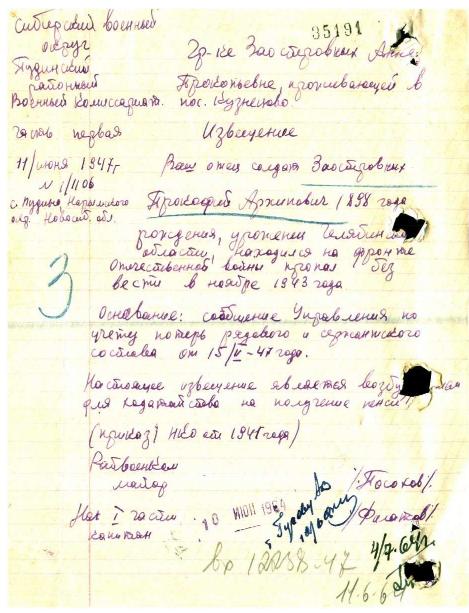 Сибирский военный
округ
Пудинский
районный
Военный Комиссариат.
часть первая
11/июня 1947г
№ 1/1106
с. Пудино, Нарымского
окр. Новосиб. обл.
35191
Гр-ке Заостровных Анне
Прокопьевне, проживающей в
пос. Кузнецово
Извещение
Ваш отец солдат Заостровных
Прокофий Архипович 1898 года
рождения, уроженец Челябинской
области, находился на фронте
Отечественной войны пропал без
вести в ноябре 1943 года
3
Основание: сообщение Управления по
учету потерь рядового и сержантского
состава от 15/II-47 года.
Настоящее извещение является
для ходатайства на получение пенсии
(приказ) НКО от 1941 года)
Райвоенком
майор /Посохов/.
Нач I части
капитан /Филатов/
10 ИЮЛ 1964
вр 12238-47
4/7.64г
11.6.64